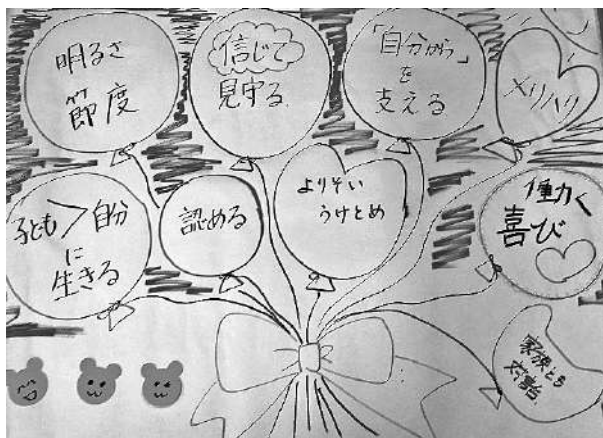 明るさ
節度
信じて
見守る
「自分から」
を
支える
メリハリ
子ども>自分
に
生きる
認める
よりそい
うけとめ
働く
喜び
家族とも
対話